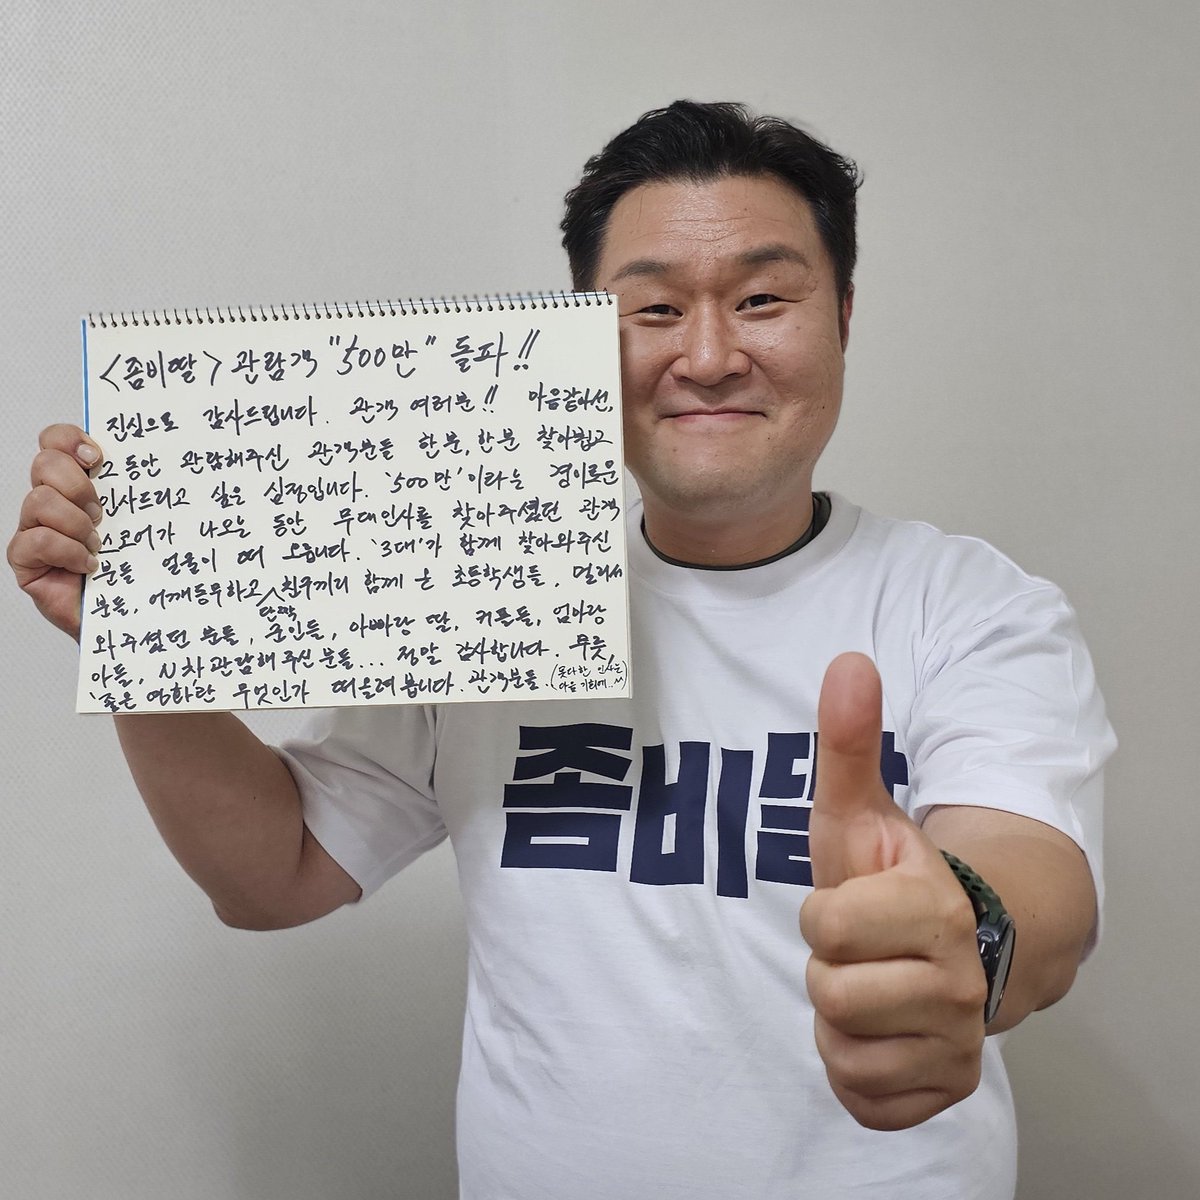 <좀비딸> 관람객 "500만" 돌파!!
진심으로 감사드립니다. 관객 여러분!! 마음같아선,
그동안 관람해주신 관객분들 한분, 한분 찾아뵙고
인사드리고 싶은 심정입니다. '500만'이라는 경이로운
스코어가 나오는 동안 무대인사를 찾아주셨던 관객
분들 얼굴이 떠 오릅니다. '3대'가 함께 찾아와주신
분들, 어깨동무하고 단짝 친구끼리 함께 온 초등학생들, 멀리서
와주셨던 분들, 군인들, 아빠랑 딸, 커플들, 엄마랑
아들, N차 관람해 주신 분들... 정말 감사합니다. 무릇,
'좋은 영화'란 무엇인가 떠올려 봅니다. 관객분들.
(못다한 인사는
다음 기회에..^^)
좀비딸